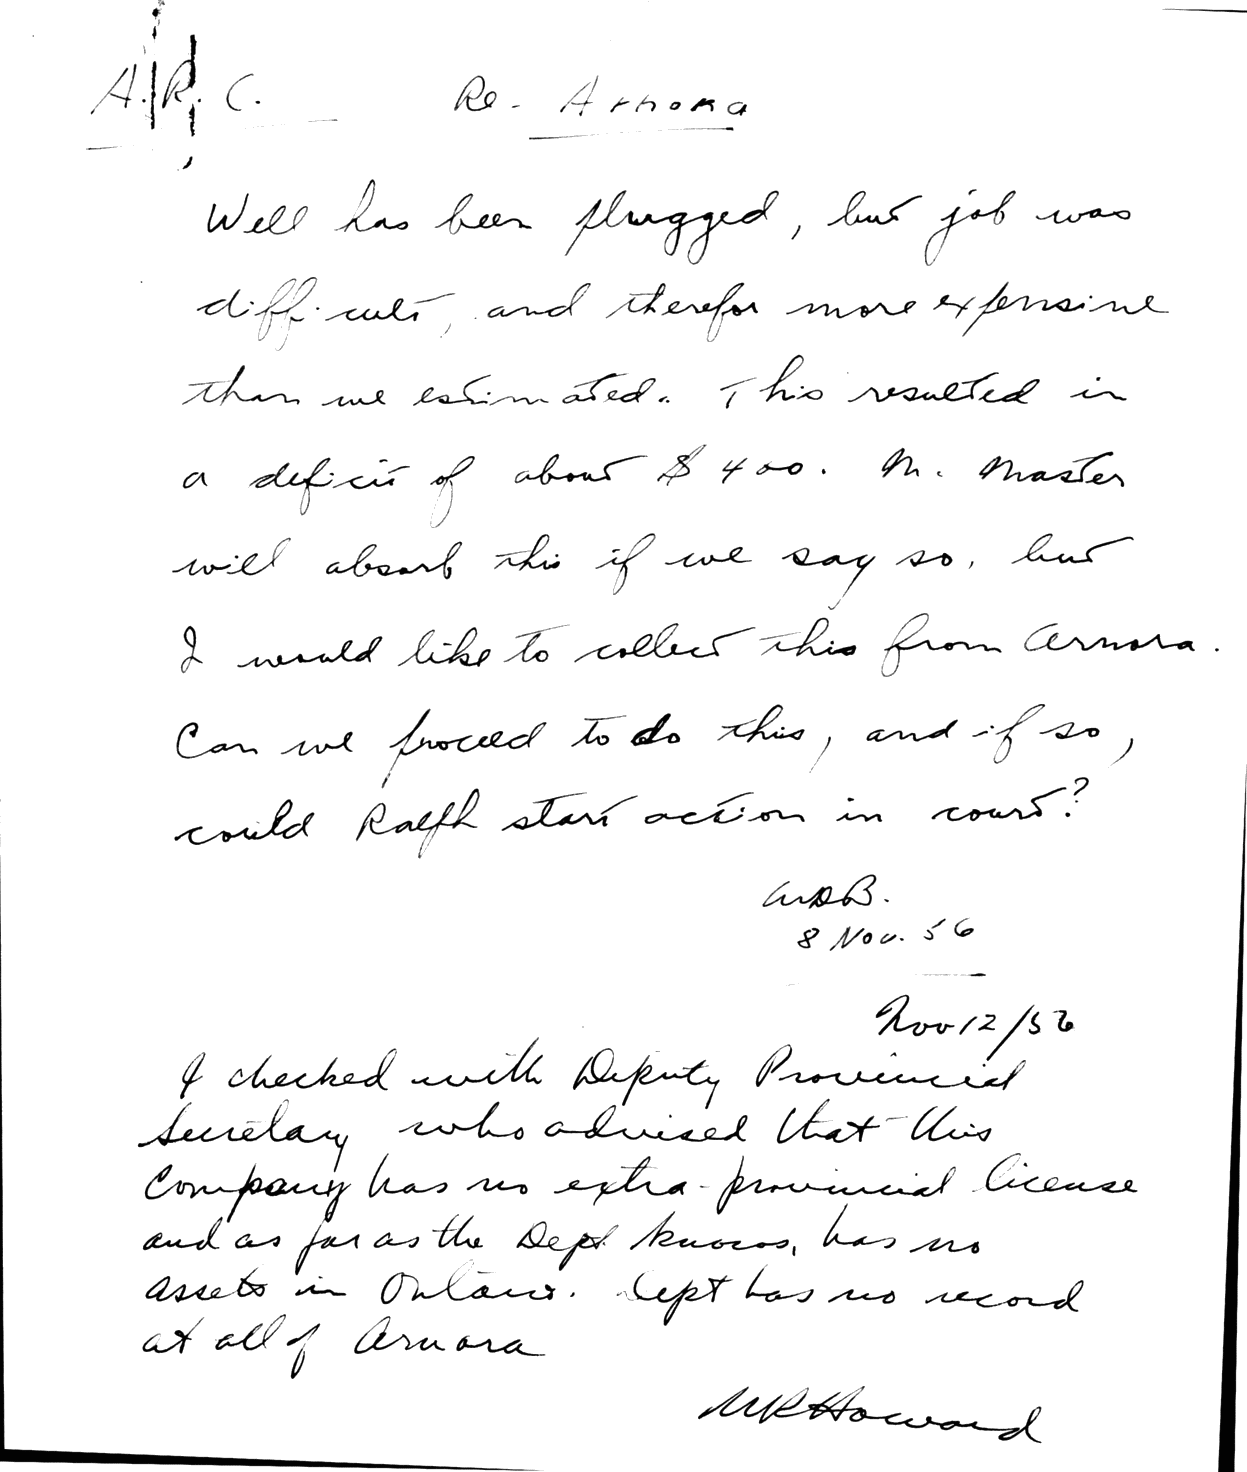 A.R.C. Re- Arnora
Well has been plugged, but job was
difficult, and therefor more expensive
than we estimated. This resulted in
a deficit of about $400. M. Master
will absorb this if we say so, but
I would like to collect this from Arnora.
Can we proceed to do this, and if so,
could Ralph start action in court?
8 Nov. 56
Nov 12/56
I checked with Deputy Provincial
Secretary who advised that this
Company has no extra-provincial license
and as far as the Dept knows, has no
assets in Ontario. Dept has no record
at all of Arnora
Howard